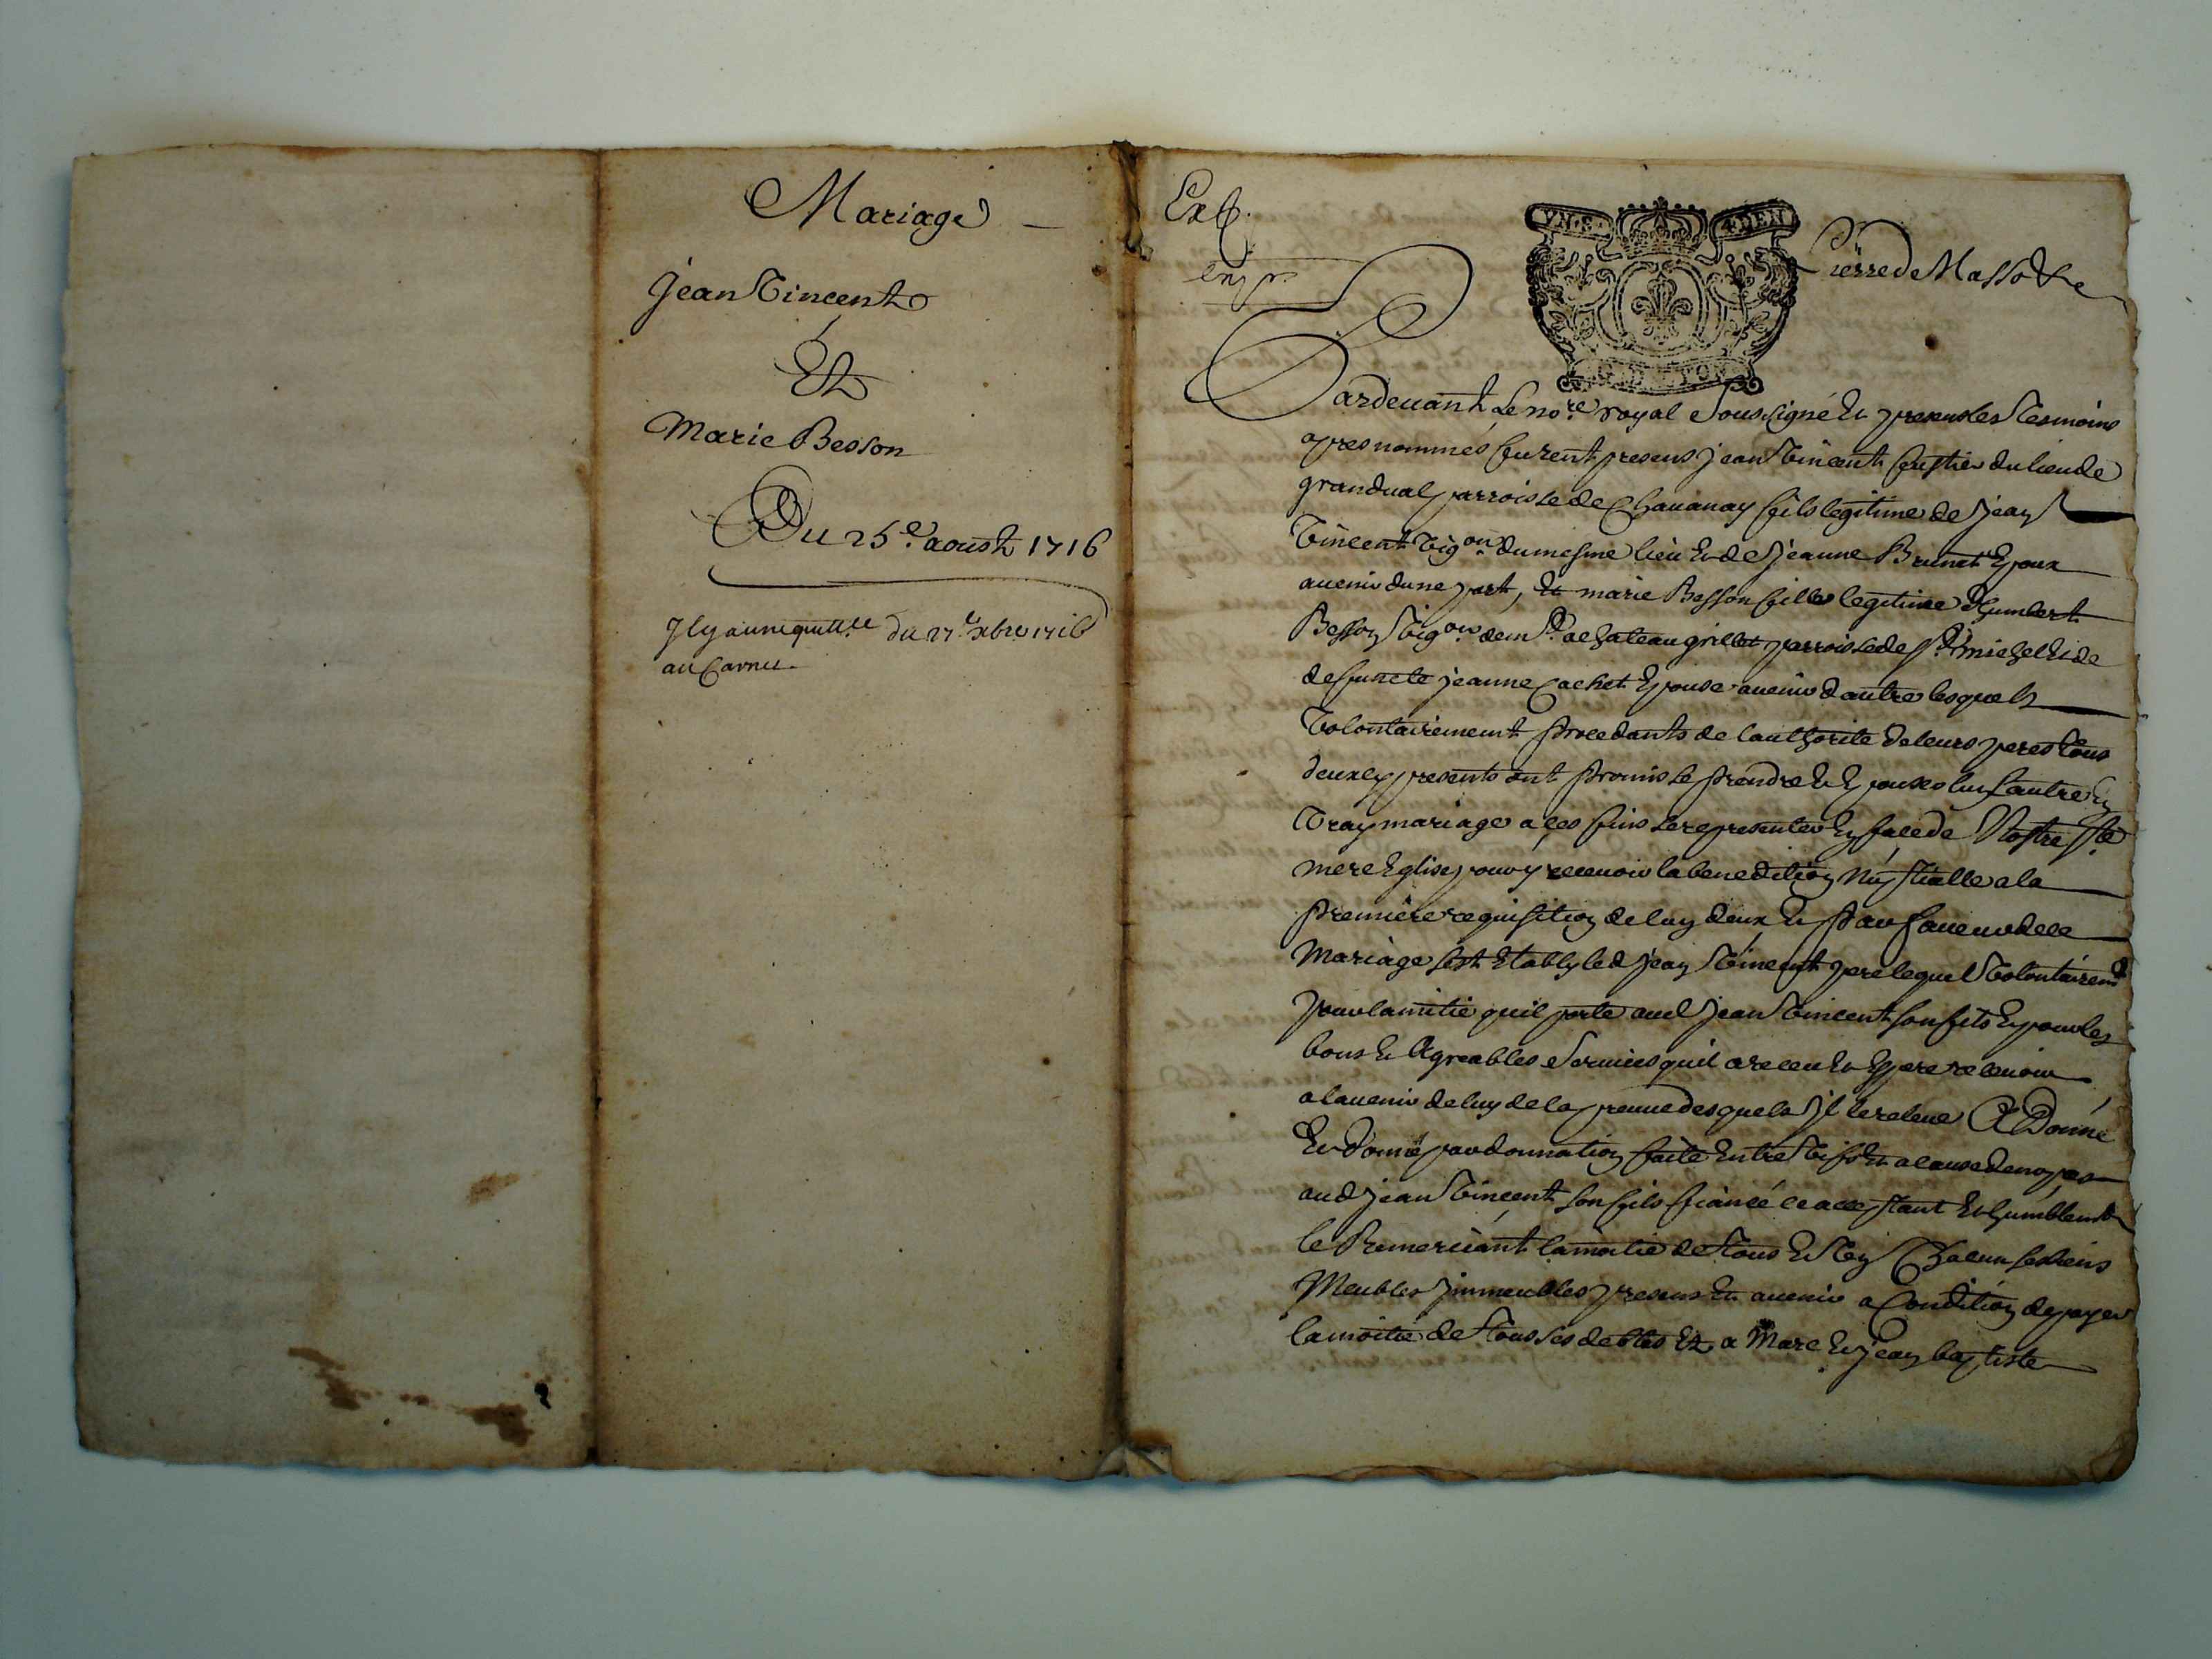 Mariage
jean Vincent
Et
Marie Besson
Du 25e aoust 1716
Jl y a une quittce du 27e xbre 1716
au Carnet
Exp.
VN. S. 4 DEN
G. DE LYON
Pierre de Massotte
Pardeuant Le nore royal Soussigné Et presents les Tesmoins
apres nommés furent presens jean Vincent fustier du lieu de
grandual parroisse de Chauanay fils legitime de jean
Vincent Vigon du mesme lieu Et de jeanne Brunet Epoux
auenir dune part, Et marie Besson fille legitime d'humbert
Besson Vigon dem a chateau grillet parroisse de St michel Et de
deffuncte jeanne Cachet Epouse auenir dautre lesquels
Volontairement procedants de lauthorité de leurs peres tous
deux cy presents ont promis se prendre Et Epouser lun lautre En
Vray mariage a ces fins se representer En face de Nostre Ste
mere Eglise pour y receuoir la benediction Nuptialle a la
premiere requisition de lun deux Et par faueur de ce
Mariage sest Etably led jean Vincent pere lequel Volontairemt
pour lamitié quil porte aud jean Vincent son fils Et pour les
bons Et Agreables Seruices quil a receu Et Espere receuoir
a lauenir de luy de la preuue desquels jl le releue A Donné
Et donne par donnation faite Entre Vifs Et a cause de nopces
aud jean Vincent son fils fiancé ce acceptant Et humblemt
le Remerciant la moitié de tous Et Vn Chacun ses biens
Meubles jmmeubles presens Et auenir a Condition de payer
la moitié de tous ses debtes Et a Marc Et jean baptiste